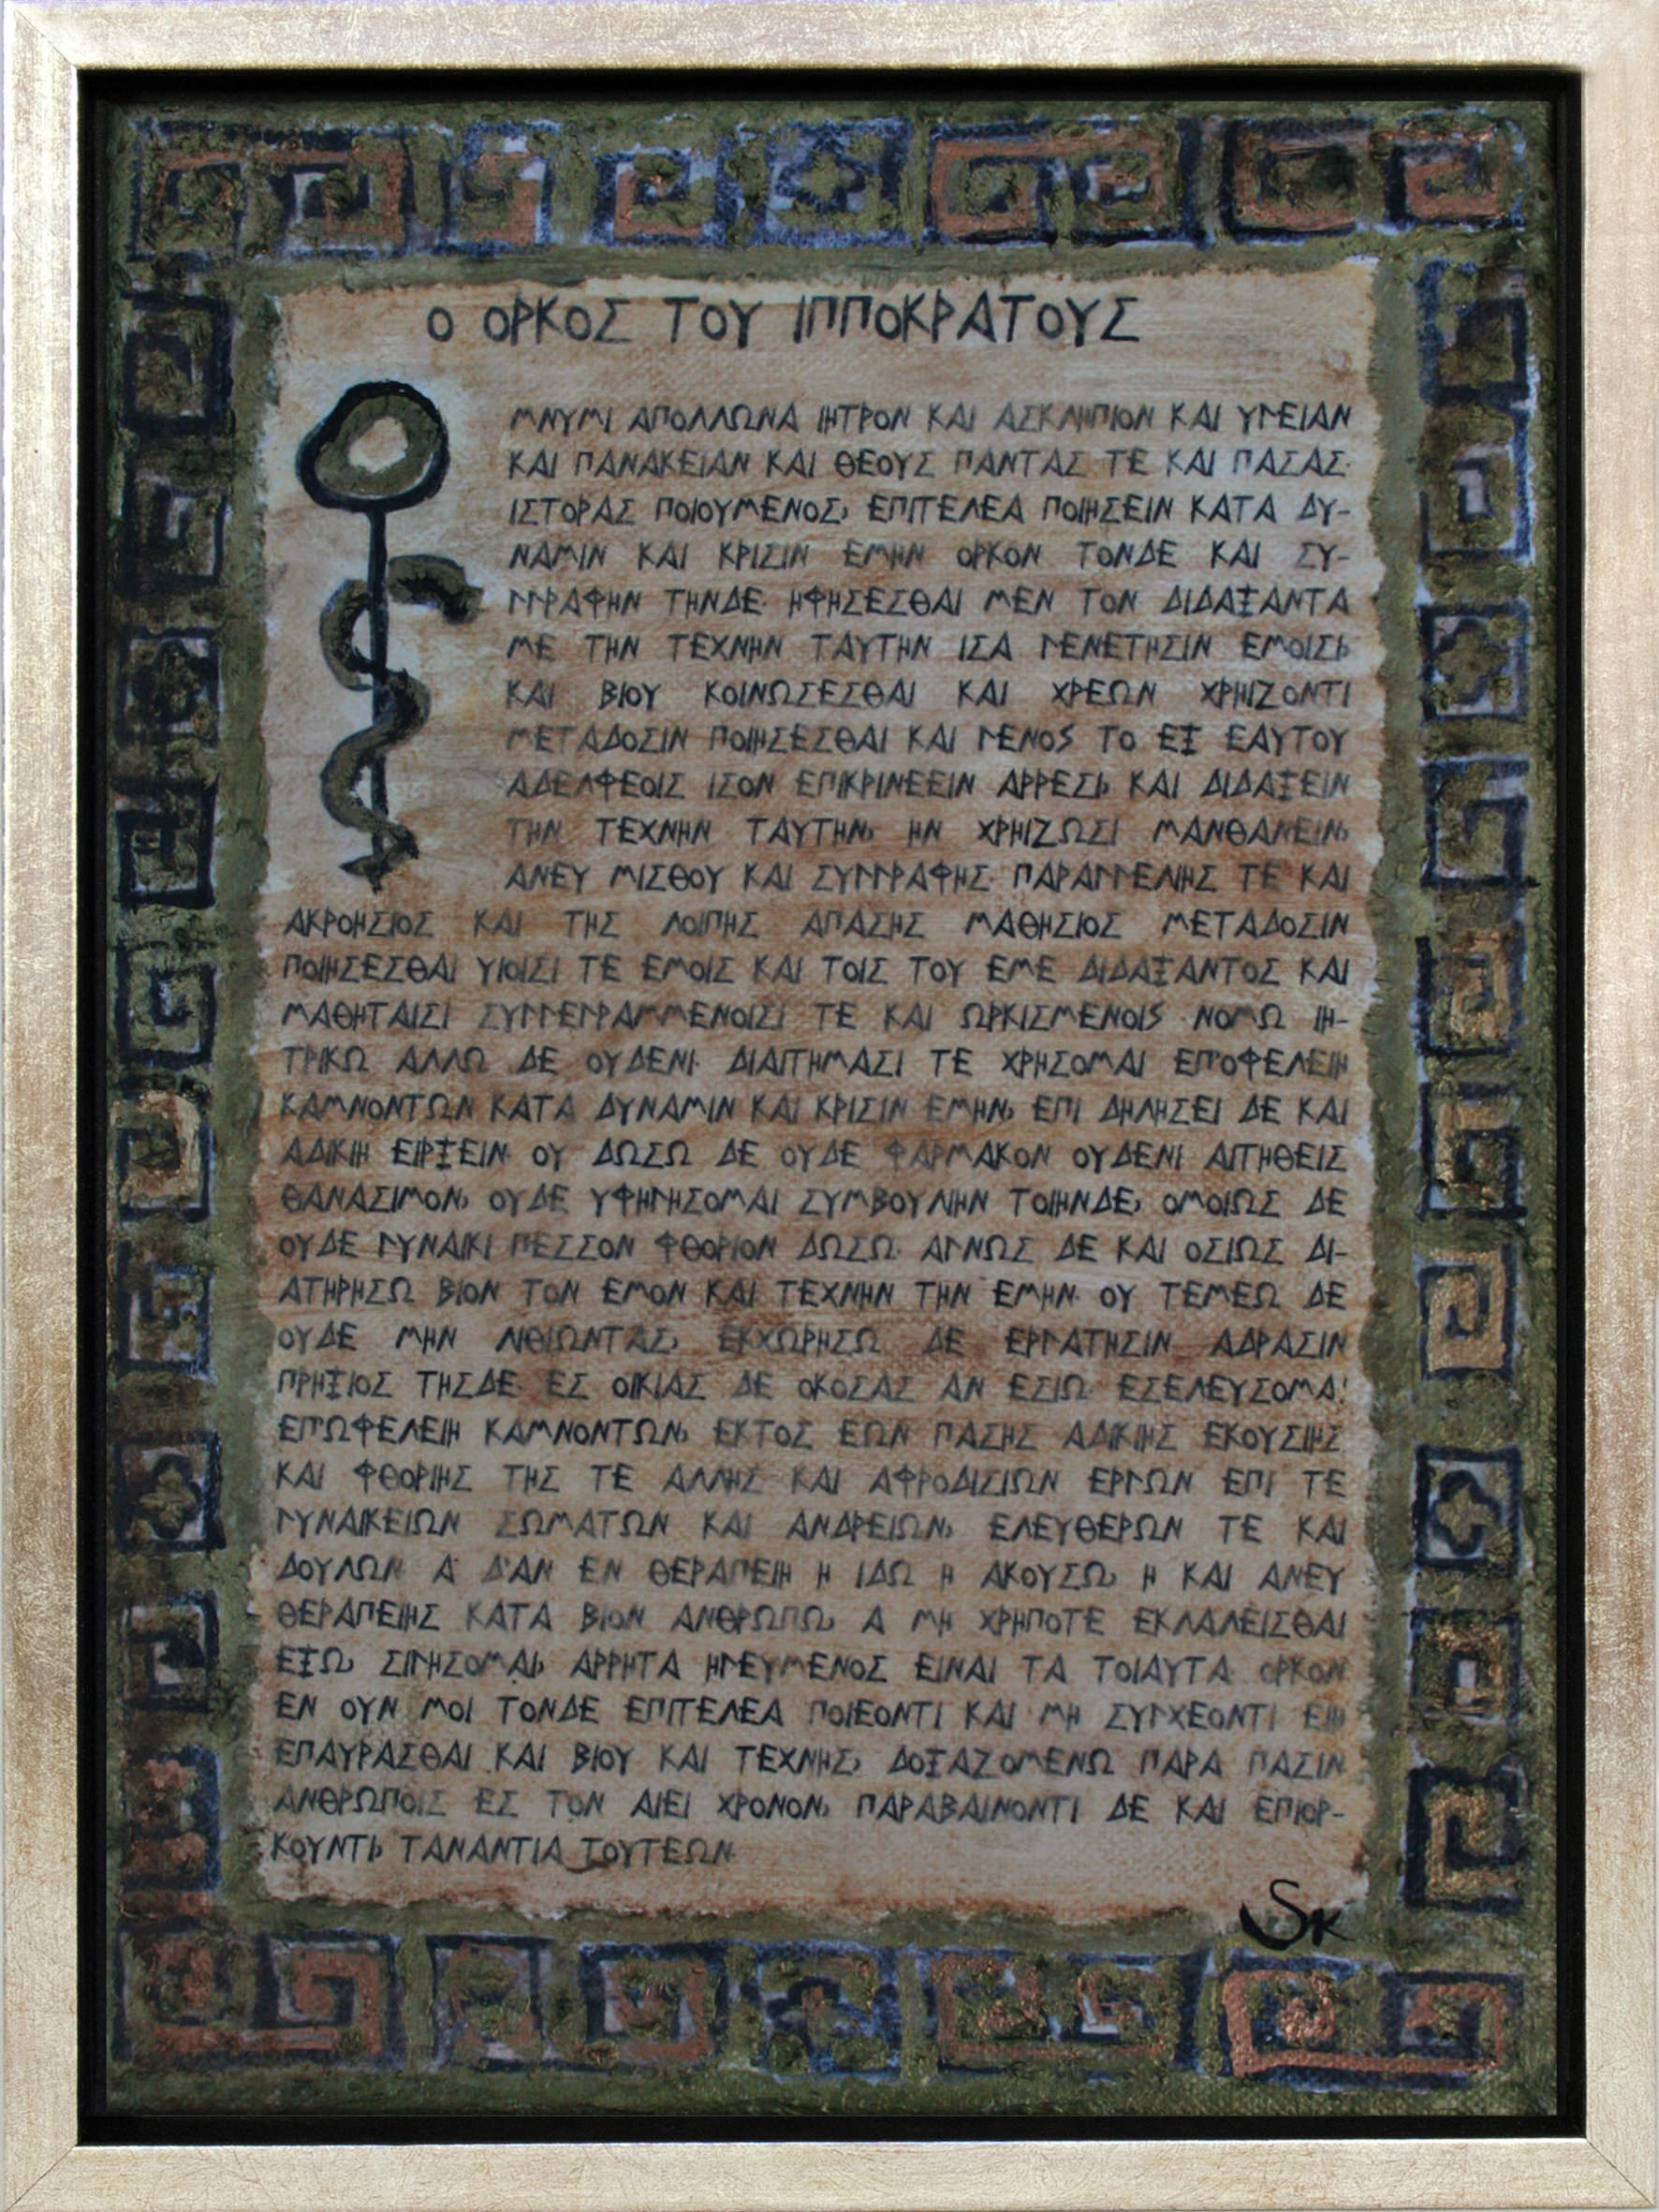 Ο ΟΡΚΟΣ ΤΟΥ ΙΠΠΟΚΡΑΤΟΥΣ
ΜΝΥΜΙ ΑΠΟΛΛΩΝΑ ΙΗΤΡΟΝ ΚΑΙ ΑΣΚΛΗΠΙΟΝ ΚΑΙ ΥΓΕΙΑΝ
ΚΑΙ ΠΑΝΑΚΕΙΑΝ ΚΑΙ ΘΕΟΥΣ ΠΑΝΤΑΣ ΤΕ ΚΑΙ ΠΑΣΑΣ·
ΙΣΤΟΡΑΣ ΠΟΙΟΥΜΕΝΟΣ, ΕΠΙΤΕΛΕΑ ΠΟΙΗΣΕΙΝ ΚΑΤΑ ΔΥ-
ΝΑΜΙΝ ΚΑΙ ΚΡΙΣΙΝ ΕΜΗΝ ΟΡΚΟΝ ΤΟΝΔΕ ΚΑΙ ΣΥ-
ΓΓΡΑΦΗΝ ΤΗΝΔΕ· ΗΦΗΣΕΣΘΑΙ ΜΕΝ ΤΟΝ ΔΙΔΑΞΑΝΤΑ
ΜΕ ΤΗΝ ΤΕΧΝΗΝ ΤΑΥΤΗΝ ΙΣΑ ΓΕΝΕΤΗΣΙΝ ΕΜΟΙΣΙ,
ΚΑΙ ΒΙΟΥ ΚΟΙΝΩΣΕΣΘΑΙ ΚΑΙ ΧΡΕΩΝ ΧΡΗΙΖΟΝΤΙ
ΜΕΤΑΔΟΣΙΝ ΠΟΙΗΣΕΣΘΑΙ ΚΑΙ ΓΕΝΟΣ ΤΟ ΕΞ ΕΑΥΤΟΥ
ΑΔΕΛΦΕΟΙΣ ΙΣΟΝ ΕΠΙΚΡΙΝΕΕΙΝ ΑΡΡΕΣΙ, ΚΑΙ ΔΙΔΑΞΕΙΝ
ΤΗΝ ΤΕΧΝΗΝ ΤΑΥΤΗΝ, ΗΝ ΧΡΗΙΖΩΣΙ ΜΑΝΘΑΝΕΙΝ,
ΑΝΕΥ ΜΙΣΘΟΥ ΚΑΙ ΣΥΓΓΡΑΦΗΣ· ΠΑΡΑΓΓΕΛΙΗΣ ΤΕ ΚΑΙ
ΑΚΡΟΗΣΙΟΣ ΚΑΙ ΤΗΣ ΛΟΙΠΗΣ ΑΠΑΣΗΣ ΜΑΘΗΣΙΟΣ ΜΕΤΑΔΟΣΙΝ
ΠΟΙΗΣΕΣΘΑΙ ΥΙΟΙΣΙ ΤΕ ΕΜΟΙΣ ΚΑΙ ΤΟΙΣ ΤΟΥ ΕΜΕ ΔΙΔΑΞΑΝΤΟΣ ΚΑΙ
ΜΑΘΗΤΑΙΣΙ ΣΥΓΓΕΓΡΑΜΜΕΝΟΙΣΙ ΤΕ ΚΑΙ ΩΡΚΙΣΜΕΝΟΙΣ ΝΟΜΩ ΙΗ-
ΤΡΙΚΩ ΑΛΛΩ ΔΕ ΟΥΔΕΝΙ· ΔΙΑΙΤΗΜΑΣΙ ΤΕ ΧΡΗΣΟΜΑΙ ΕΠ'ΟΦΕΛΕΙΗ
ΚΑΜΝΟΝΤΩΝ ΚΑΤΑ ΔΥΝΑΜΙΝ ΚΑΙ ΚΡΙΣΙΝ ΕΜΗΝ, ΕΠΙ ΔΗΛΗΣΕΙ ΔΕ ΚΑΙ
ΑΔΙΚΙΗ ΕΙΡΞΕΙΝ· ΟΥ ΔΩΣΩ ΔΕ ΟΥΔΕ ΦΑΡΜΑΚΟΝ ΟΥΔΕΝΙ ΑΙΤΗΘΕΙΣ
ΘΑΝΑΣΙΜΟΝ, ΟΥΔΕ ΥΦΗΓΗΣΟΜΑΙ ΣΥΜΒΟΥΛΙΗΝ ΤΟΙΗΝΔΕ, ΟΜΟΙΩΣ ΔΕ
ΟΥΔΕ ΓΥΝΑΙΚΙ ΠΕΣΣΟΝ ΦΘΟΡΙΟΝ ΔΩΣΩ· ΑΓΝΩΣ ΔΕ ΚΑΙ ΟΣΙΩΣ ΔΙ-
ΑΤΗΡΗΣΩ ΒΙΟΝ ΤΟΝ ΕΜΟΝ ΚΑΙ ΤΕΧΝΗΝ ΤΗΝ ΕΜΗΝ· ΟΥ ΤΕΜΕΩ ΔΕ
ΟΥΔΕ ΜΗΝ ΛΙΘΙΩΝΤΑΣ, ΕΚΧΩΡΗΣΩ ΔΕ ΕΡΓΑΤΗΣΙΝ ΑΔΡΑΣΙΝ
ΠΡΗΞΙΟΣ ΤΗΣΔΕ· ΕΣ ΟΙΚΙΑΣ ΔΕ ΟΚΟΣΑΣ ΑΝ ΕΣΙΩ ΕΣΕΛΕΥΣΟΜΑΙ
ΕΠ'ΩΦΕΛΕΙΗ ΚΑΜΝΟΝΤΩΝ, ΕΚΤΟΣ ΕΩΝ ΠΑΣΗΣ ΑΔΙΚΙΗΣ ΕΚΟΥΣΙΗΣ
ΚΑΙ ΦΘΟΡΙΗΣ ΤΗΣ ΤΕ ΑΛΛΗΣ ΚΑΙ ΑΦΡΟΔΙΣΙΩΝ ΕΡΓΩΝ ΕΠΙ ΤΕ
ΓΥΝΑΙΚΕΙΩΝ ΣΩΜΑΤΩΝ ΚΑΙ ΑΝΔΡΕΙΩΝ, ΕΛΕΥΘΕΡΩΝ ΤΕ ΚΑΙ
ΔΟΥΛΩΝ Α Δ'ΑΝ ΕΝ ΘΕΡΑΠΕΙΗ Η ΙΔΩ Η ΑΚΟΥΣΩ, Η ΚΑΙ ΑΝΕΥ
ΘΕΡΑΠΕΙΗΣ ΚΑΤΑ ΒΙΟΝ ΑΝΘΡΩΠΩ, Α ΜΗ ΧΡΗΠΟΤΕ ΕΚΛΑΛΕΙΣΘΑΙ
ΕΞΩ, ΣΙΓΗΣΟΜΑΙ, ΑΡΡΗΤΑ ΗΓΕΥΜΕΝΟΣ ΕΙΝΑΙ ΤΑ ΤΟΙΑΥΤΑ ΟΡΚΟΝ
ΕΝ ΟΥΝ ΜΟΙ ΤΟΝΔΕ ΕΠΙΤΕΛΕΑ ΠΟΙΕΟΝΤΙ ΚΑΙ ΜΗ ΣΥΓΧΕΟΝΤΙ ΕΙΗ
ΕΠΑΥΡΑΣΘΑΙ ΚΑΙ ΒΙΟΥ ΚΑΙ ΤΕΧΝΗΣ, ΔΟΞΑΖΟΜΕΝΩ ΠΑΡΑ ΠΑΣΙΝ
ΑΝΘΡΩΠΟΙΣ ΕΣ ΤΟΝ ΑΙΕΙ ΧΡΟΝΟΝ, ΠΑΡΑΒΑΙΝΟΝΤΙ ΔΕ ΚΑΙ ΕΠΙΟΡ-
ΚΟΥΝΤΙ, ΤΑΝΑΝΤΙΑ ΤΟΥΤΕΩΝ·
SK